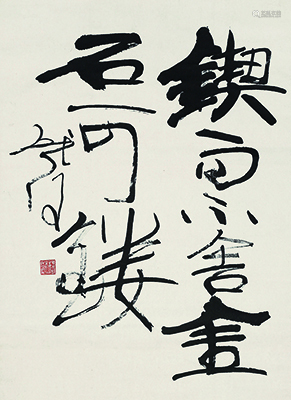 鍥而不舍金
石可鏤